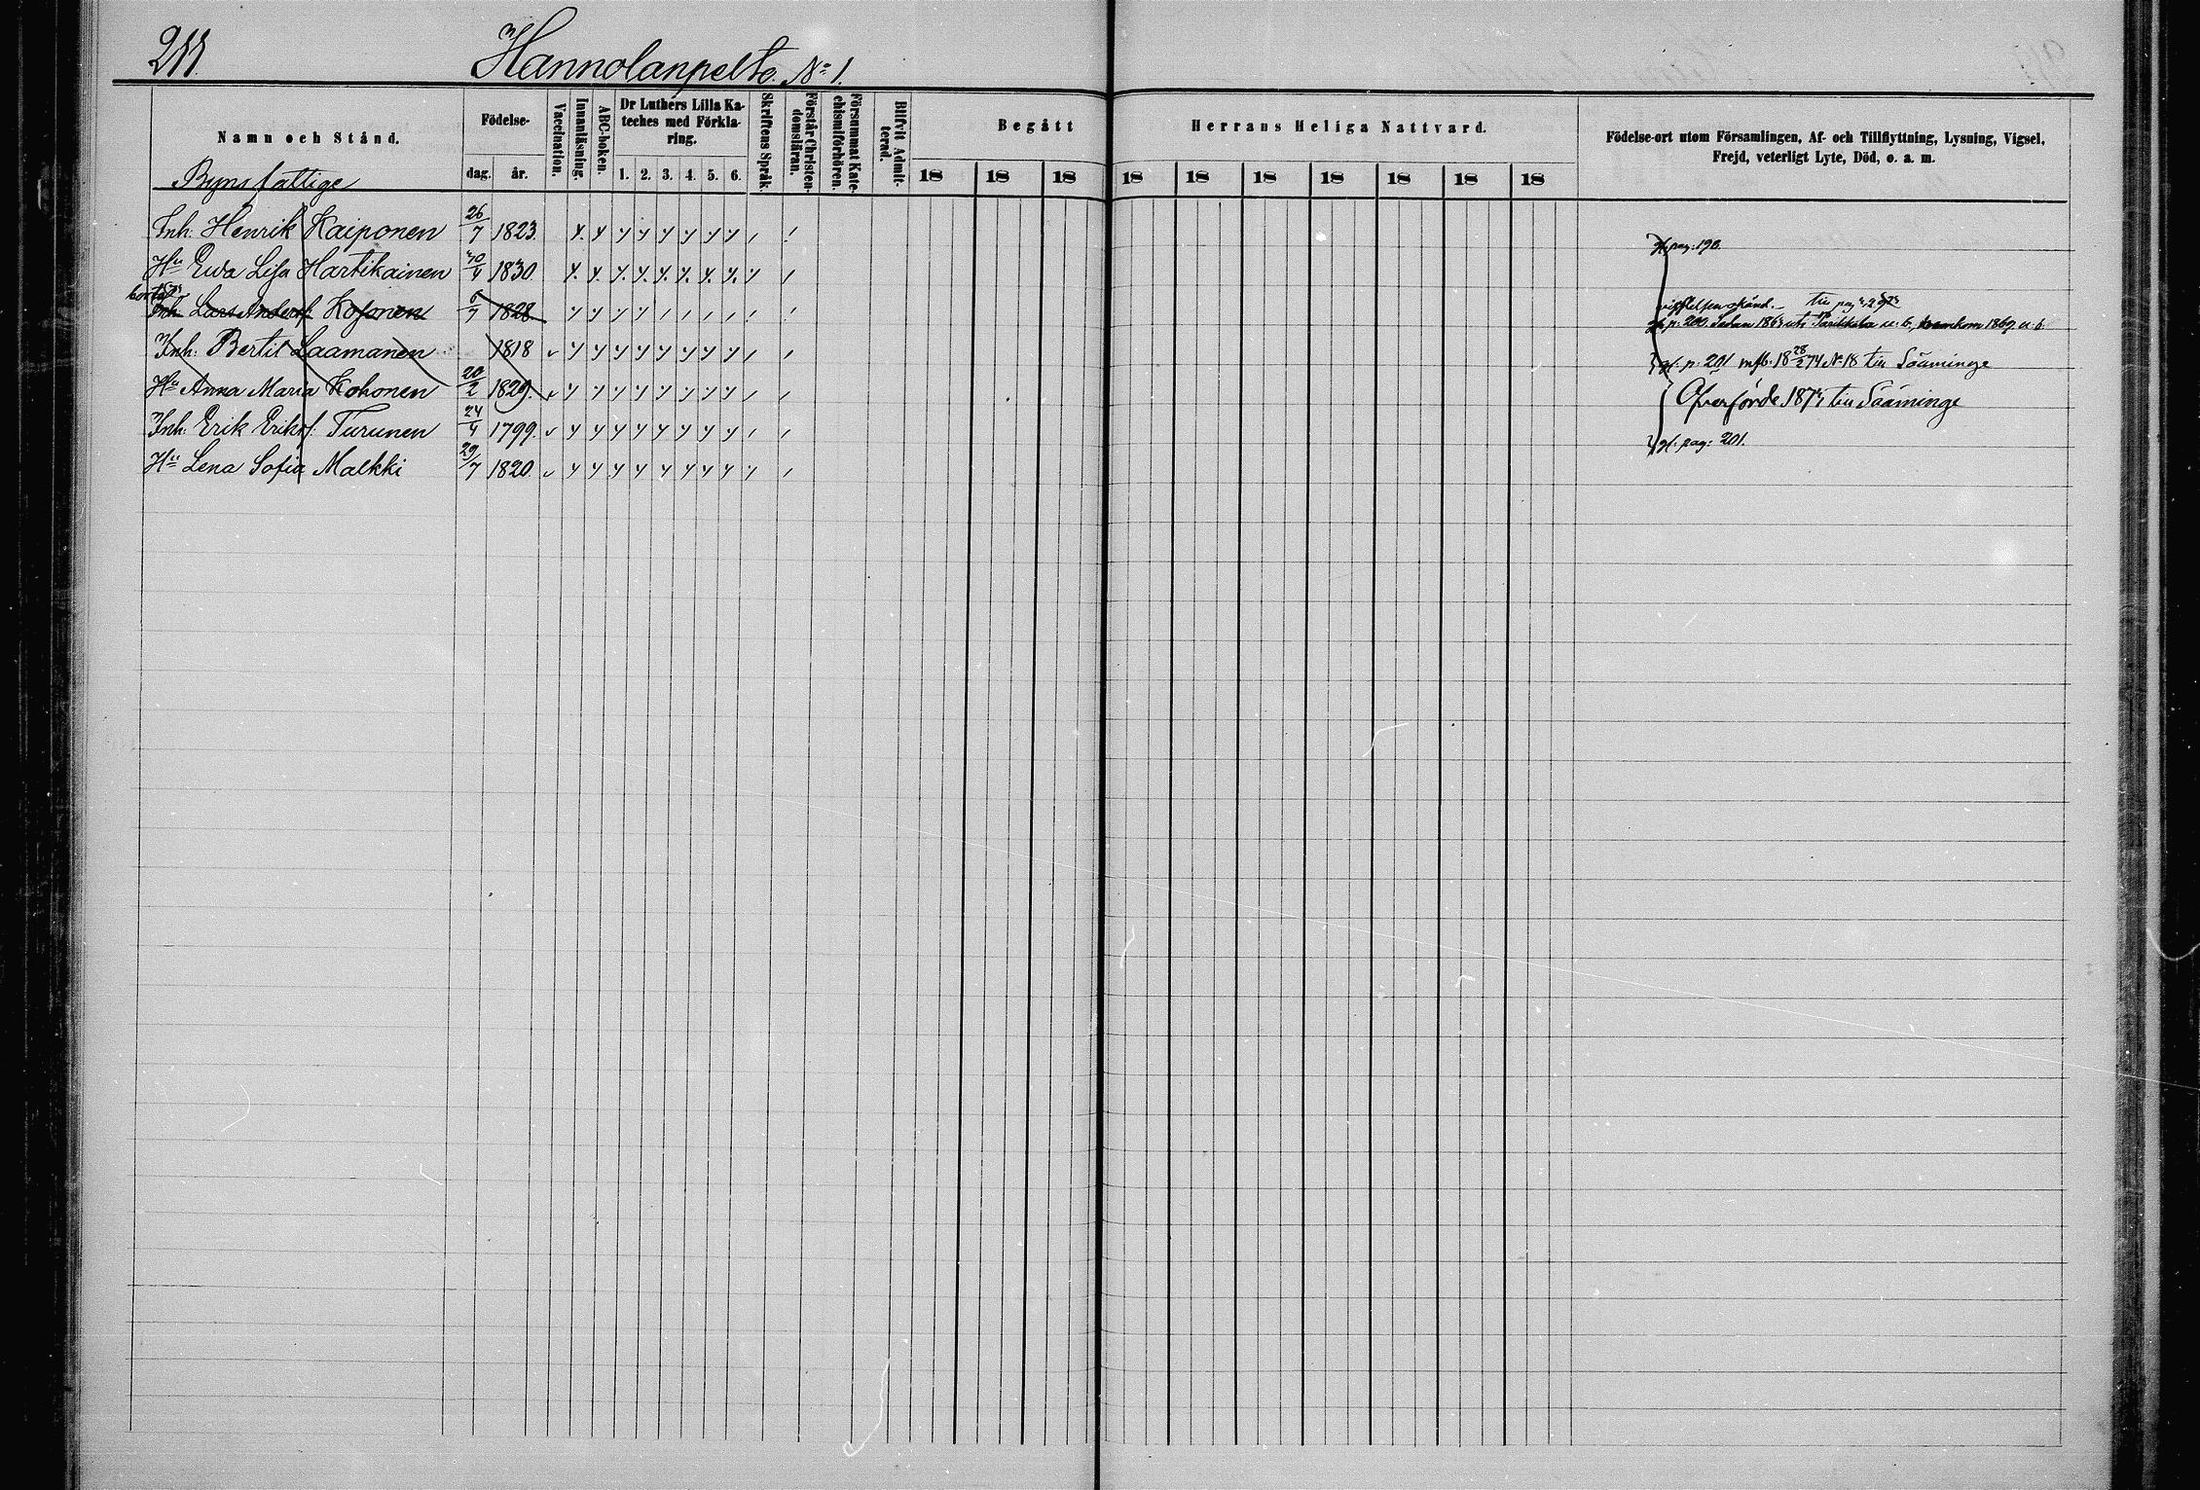 211.
Hannolanpelto. No 1.
Namn och Stånd.
Födelse-
dag.
år.
Vaccination.
Innanläsning.
ABC-boken.
Dr Luthers Lilla Ka-
teches med Förkla-
ring.
1. 2. 3. 4. 5. 6.
Skriftens Språk.
Förstår Christen-
domsläran.
Försummat Kate-
chismiförhören.
Blifvit Admit-
terad.
Begått Herrans Heliga Nattvard.
18 18 18 18 18 18 18 18 18 18
Födelse-ort utom Församlingen, Af- och Tillflyttning, Lysning, Vigsel,
Frejd, veterligt Lyte, Död, o. a. m.
Byns fattige
Inh: Henrik Kaiponen 26/7 1823. gl. pag: 190.
Hu Ewa Lisa Hartikainen 30/4 1830
Inh: Lars Andersf. Kosonen 6/7 1828. till pag:
gl. p: 200. Sedan 1863 uti Parikkala u. b. 1869 u. b.
Inh: Bertil Laamanen 1818 gl. p: 201 mfb: 18 28/2 74 No 18 till Sääminge
Hu Anna Maria Kohonen 20/2 1829. Öfverförde 1874 till Sääminge
Inh: Erik Eriksf: Turunen 24/4 1799. gl. pag: 201.
Hu Lena Sofia Malkki 29/7 1820.